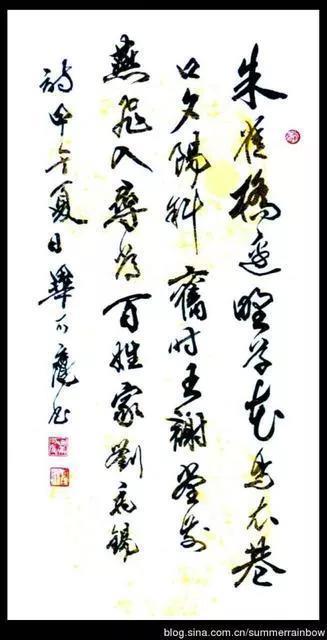 朱雀橋邊野草花烏衣巷
口夕陽斜舊时王謝堂前
燕飛入尋常百姓家劉禹錫
詩甲午夏日畢可鷹书
blog.sina.com.cn/summerrainbow